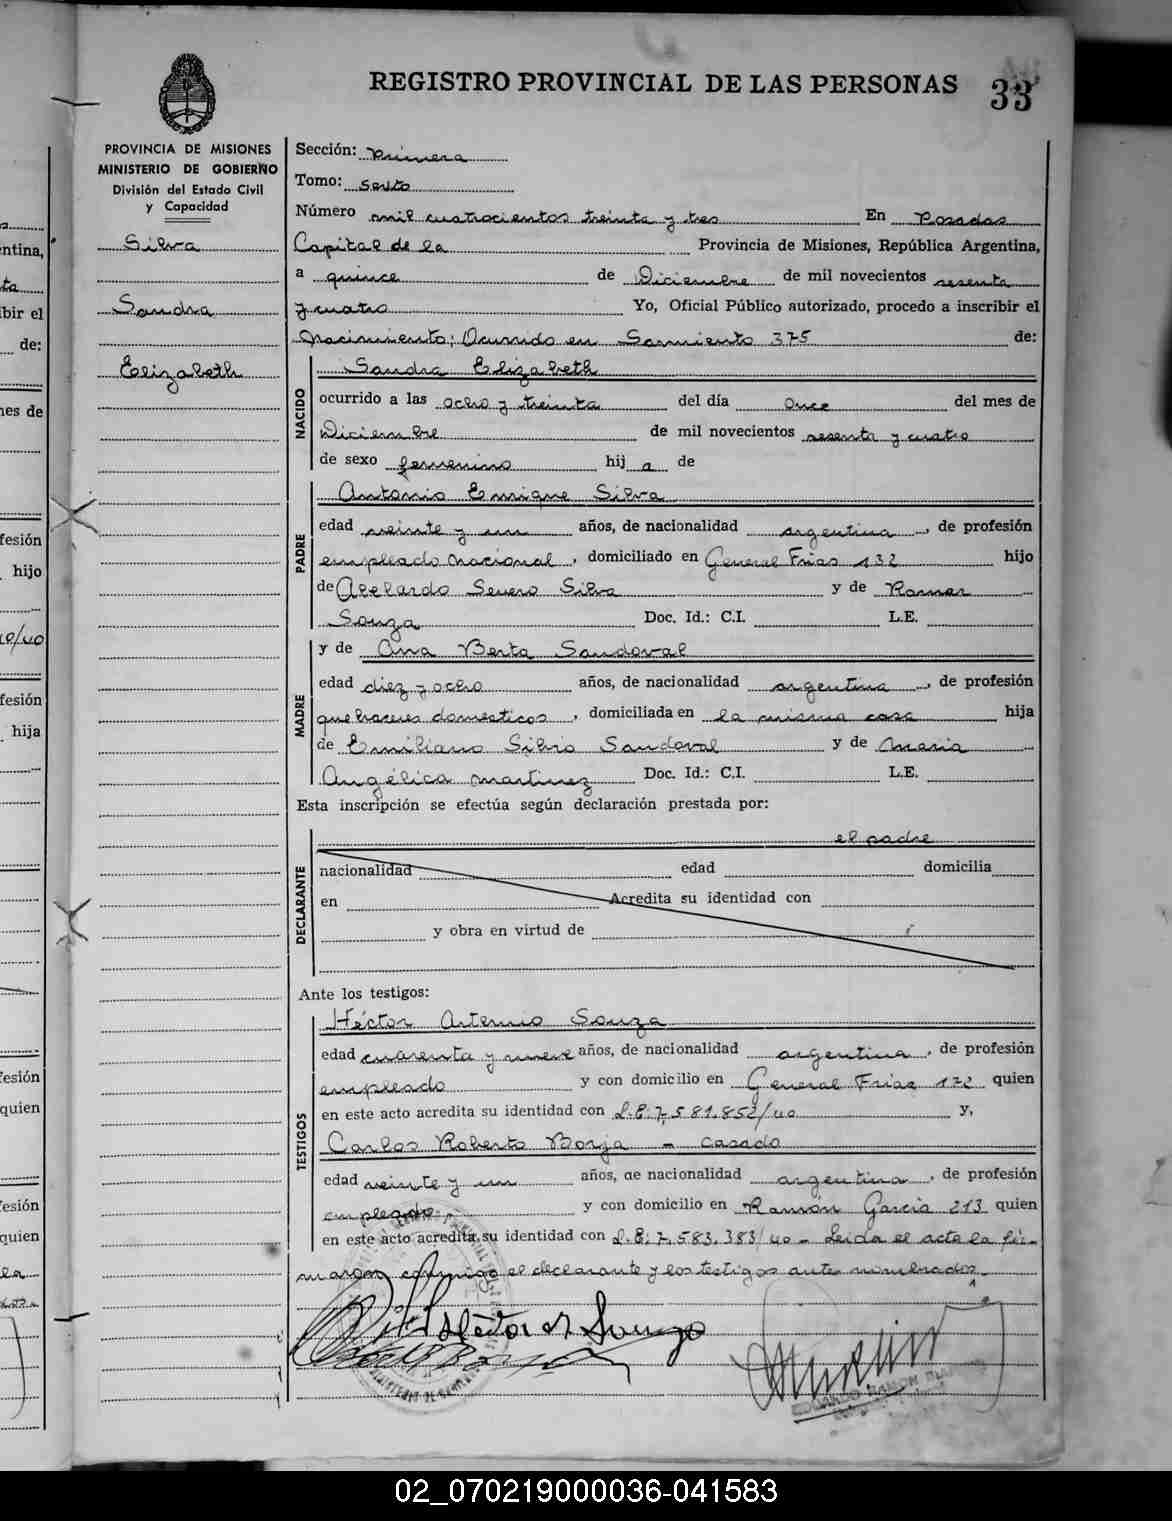 REGISTRO PROVINCIAL DE LAS PERSONAS 33
PROVINCIA DE MISIONES
MINISTERIO DE GOBIERNO
División del Estado Civil
y Capacidad
Silva
Sandra
Elizabeth
Sección: Primera
Tomo: Sexto
Número mil cuatrocientos treinta y tres En Posadas
Capital de la Provincia de Misiones, República Argentina,
a quince de Diciembre de mil novecientos sesenta
y cuatro Yo, Oficial Público autorizado, procedo a inscribir el
Nacimiento; Ocurrido en Sarmiento 375 de:
NACIDO
Sandra Elizabeth
ocurrido a las ocho y treinta del día once del mes de
Diciembre de mil novecientos sesenta y cuatro
de sexo femenino hij a de
PADRE
Antonio Enrique Silva
edad veinte y un años, de nacionalidad argentina, de profesión
empleado nacional, domiciliado en General Frias 132 hijo
de Abelardo Severo Silva y de
Souza Doc. Id.: C.I. L.E.
y de Ana Berta Sandoval
MADRE
edad diez y ocho años, de nacionalidad argentina, de profesión
quehaceres domesticos, domiciliada en la misma casa hija
de Emiliano Silvio Sandoval y de Maria
Angélica Martinez Doc. Id.: C.I. L.E.
Esta inscripción se efectúa según declaración prestada por:
el padre
DECLARANTE
nacionalidad edad domicilia
en Acredita su identidad con
y obra en virtud de
Ante los testigos:
TESTIGOS
Héctor Artemio Souza
edad cuarenta y nueve años, de nacionalidad argentina, de profesión
empleado y con domicilio en General Frias 172 quien
en este acto acredita su identidad con L.E: 7.581.852/40 y,
Carlos Roberto Borja - casado
edad veinte y un años, de nacionalidad argentina, de profesión
empleado y con domicilio en Ramon Garcia 213 quien
en este acto acredita su identidad con L.E: 7.583.383/40 - Leida el acta la fir-
maron conmigo el declarante y los testigos antes nombrados.
Héctor A Souza
02_070219000036-041583